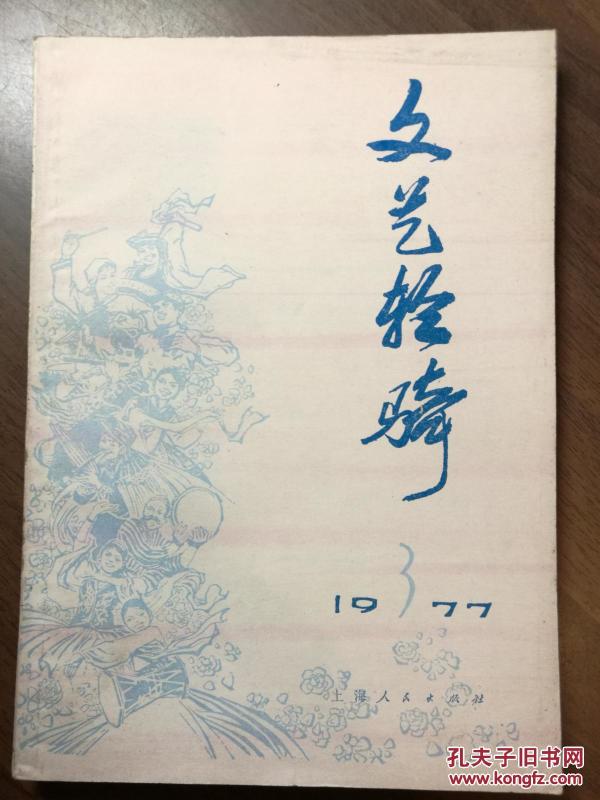 文艺轻骑
3
1977
上海人民出版社
孔夫子旧书网
www.kongfz.com